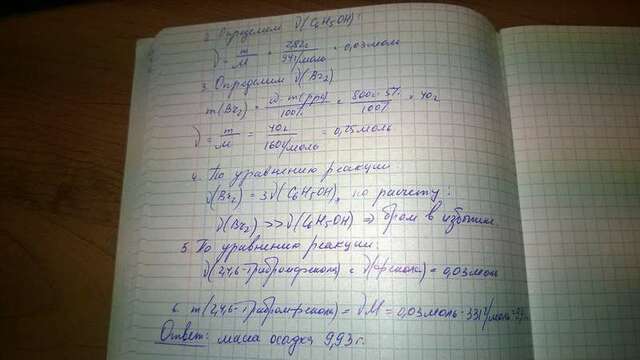 2. Определим ν(C6H5OH):
ν = m/M = 2,82г/94г/моль = 0,03моль
3. Определим ν(Br2)
m(Br2) = ω·m(рра)/100% = 800г·5%/100% = 40г
ν = m/M = 40г/160г/моль = 0,25моль
4. По уравнению реакции:
ν(Br2) = 3ν(C6H5OH), по расчету:
ν(Br2) >> ν(C6H5OH) ⇒ бром в избытке.
5. По уравнению реакции:
ν(2,4,6-трибромфенола) = ν(фенола) = 0,03моль
6. m(2,4,6-трибромфенола) = νM = 0,03моль·331г/моль =
Ответ: масса осадка 9,93г.